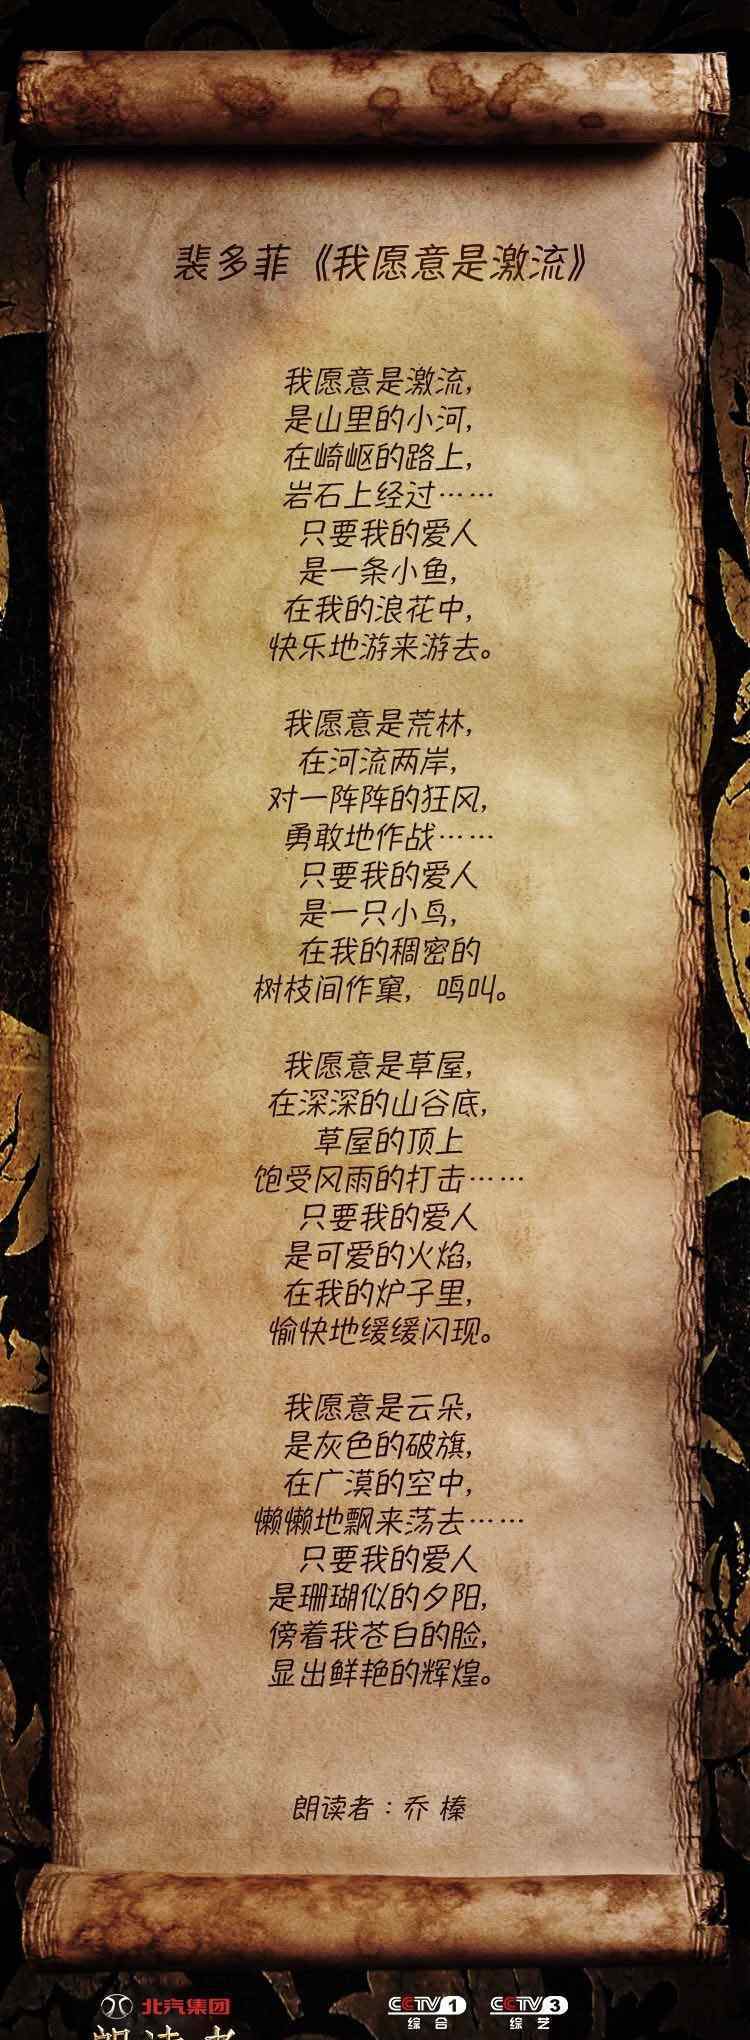 裴多菲《我愿意是激流》
我愿意是激流,
是山里的小河,
在崎岖的路上,
岩石上经过……
只要我的爱人
是一条小鱼,
在我的浪花中,
快乐地游来游去。
我愿意是荒林,
在河流两岸,
对一阵阵的狂风,
勇敢地作战……
只要我的爱人
是一只小鸟,
在我的稠密的
树枝间作窠,鸣叫。
我愿意是草屋,
在深深的山谷底,
草屋的顶上
饱受风雨的打击……
只要我的爱人
是可爱的火焰,
在我的炉子里,
愉快地缓缓闪现。
我愿意是云朵,
是灰色的破旗,
在广漠的空中,
懒懒地飘来荡去……
只要我的爱人
是珊瑚似的夕阳,
傍着我苍白的脸,
显出鲜艳的辉煌。
朗读者:乔 榛
北汽集团
CCTV 1 综合
CCTV 3 综艺
朗读者